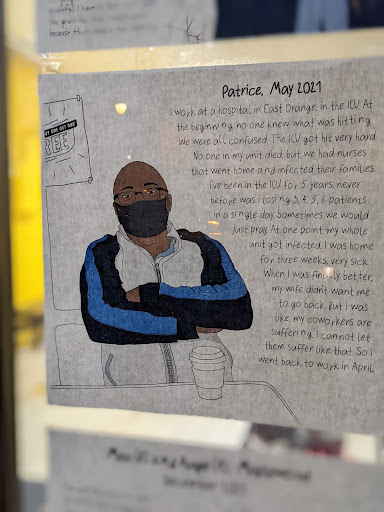 because
Patrice, May 2021
I work at a hospital in East Orange, in the ICU. At
the beginning, no one knew what was hitting.
We were all confused. The ICU got hit very hard.
No one in my unit died, but we had nurses
that went home and infected their families.
I've been in the ICU for 5 years, never
before was I losing 3, 4, 5, 6 patients
in a single day. Sometimes we would
just pray. At one point, my whole
unit got infected. I was home
for three weeks, very sick.
When I was finally better,
my wife didn't want me
to go back. But I was
like, my coworkers are
suffering. I cannot let
them suffer like that. So I
went back to work in April.
BUY ONE GET ONE
FREE